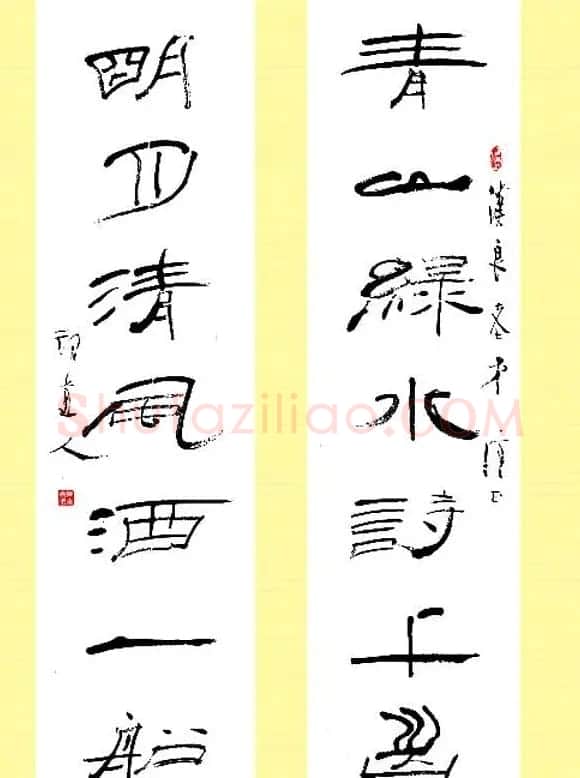 青山綠水詩千
漢良老弟 正
明月清風酒一船
人
Shufaziliao.COM